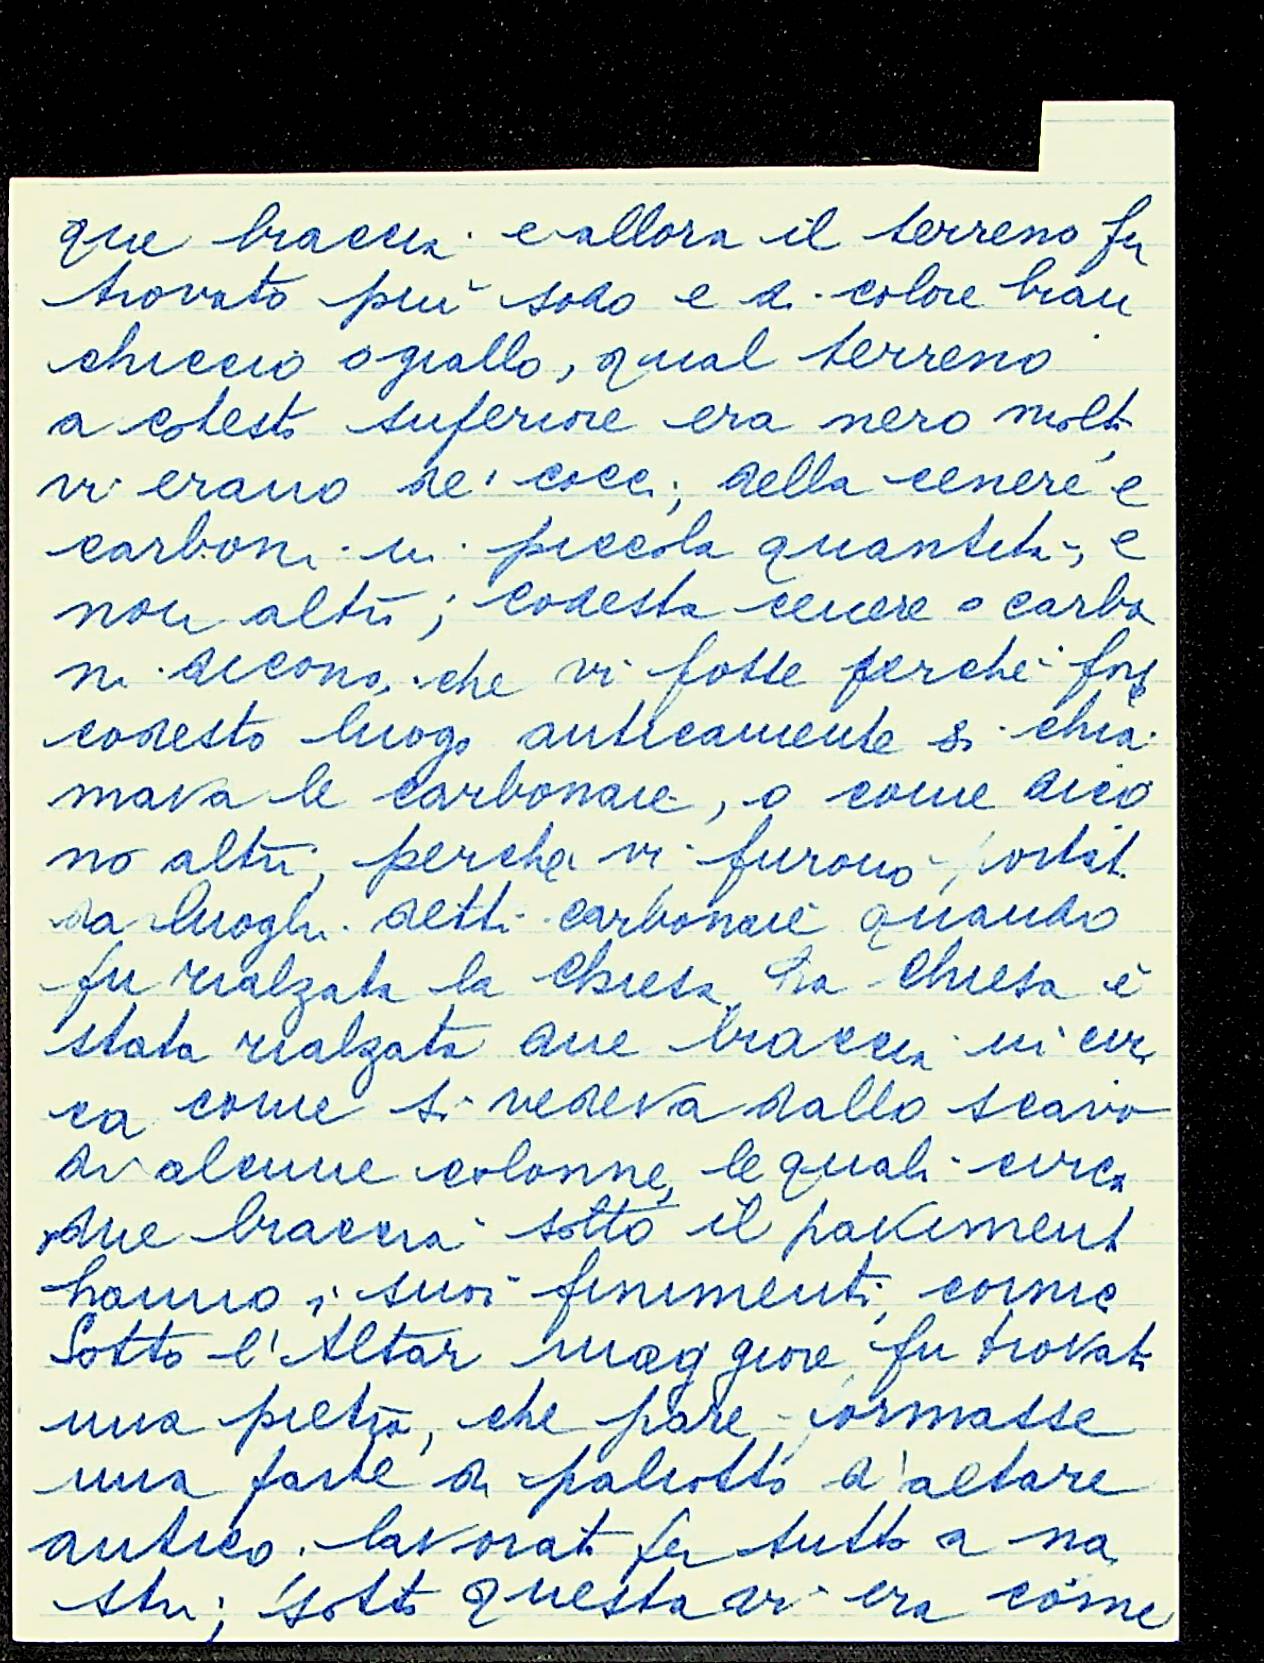 que braccia e allora il terreno fu
trovato più sodo e di colore bian
chiccio o giallo, qual terreno
a cotesto superiore era nero molti
vi erano de' cocci, della cenere e
carboni in piccola quantità, e
non altro; codesta cenere o carbo
ni dicono, che vi fosse perché fors
codesto luogo anticamente si chia
mava le carbonaie, o come dico
no altri, perché vi furono portat
da luoghi detti carbonaie quando
fu rialzata la Chiesa. La Chiesa è
stata rialzata due braccia in cir
ca come si vedeva dallo scavo
di alcune colonne, le quali circa
due braccia sotto il paviment
hanno i suoi finimenti, come
Sotto l'Altar maggiore fu trovata
una pietra, che pare formasse
una parte di paliotto d'altare
antico lavorato tutto a na
stri; sotto questa vi era come